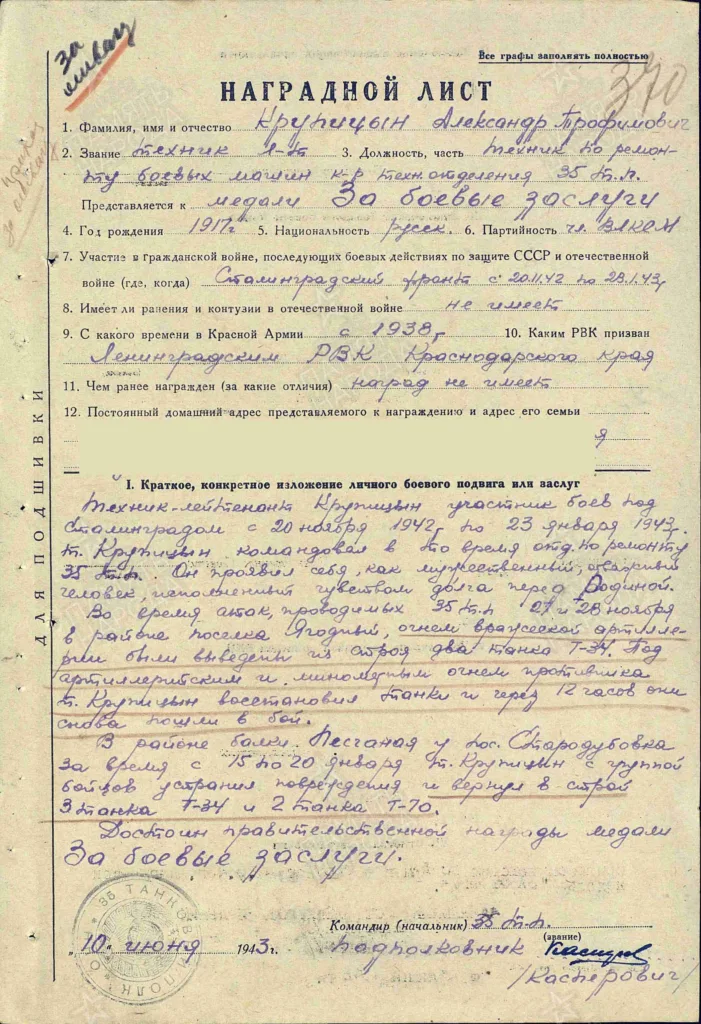 за
отвагу
370
Все графы заполнять полностью
НАГРАДНОЙ ЛИСТ
1. Фамилия, имя и отчество Крупицын Александр Трофимович
2. Звание техник л-т 3. Должность, часть техник по ремон-
ту боевых машин к-р техотделения 35 т.п.
Представляется к медали За боевые заслуги
4. Год рождения 1917г 5. Национальность русск. 6. Партийность чл. ВЛКСМ
7. Участие в гражданской войне, последующих боевых действиях по защите СССР и отечественной
войне (где, когда) Сталинградский фронт с 20.11.42 по 23.1.43г
8. Имеет ли ранения и контузии в отечественной войне не имеет
9. С какого времени в Красной Армии с 1938г 10. Каким РВК призван
Ленинградским РВК Краснодарского края
11. Чем ранее награжден (за какие отличия) наград не имеет
12. Постоянный домашний адрес представляемого к награждению и адрес его семьи
я
ДЛЯ ПОДШИВКИ
I. Краткое, конкретное изложение личного боевого подвига или заслуг
Техник-лейтенант Крупицын участник боев под
Сталинградом с 20 ноября 1942г по 23 января 1943г.
т. Крупицын командовал в то время отд. по ремонту
35 т.п. Он проявил себя, как мужественный, отважный
человек, исполненный чувством долга перед Родиной.
Во время атак, проводимых 35 т.п 27 и 28 ноября
в районе поселка Ягодный, огнем вражеской артилле-
рии были выведены из строя два танка Т-34. Под
артиллеритским и минометным огнем противника
т. Крупицын восстановил танки и через 12 часов они
снова пошли в бой.
В районе балки Песчаная у пос. Стародубовка
за время с 15 по 20 января т. Крупицын с группой
бойцов устранил повреждения и вернул в строй
3 танка Т-34 и 2 танка Т-70.
Достоин правительственной награды медали
За боевые заслуги.
35 ТАНКОВ ПОЛК
Командир (начальник) 35 т.п.
(звание)
„10" июня 1943г. подполковник
/Касперович/